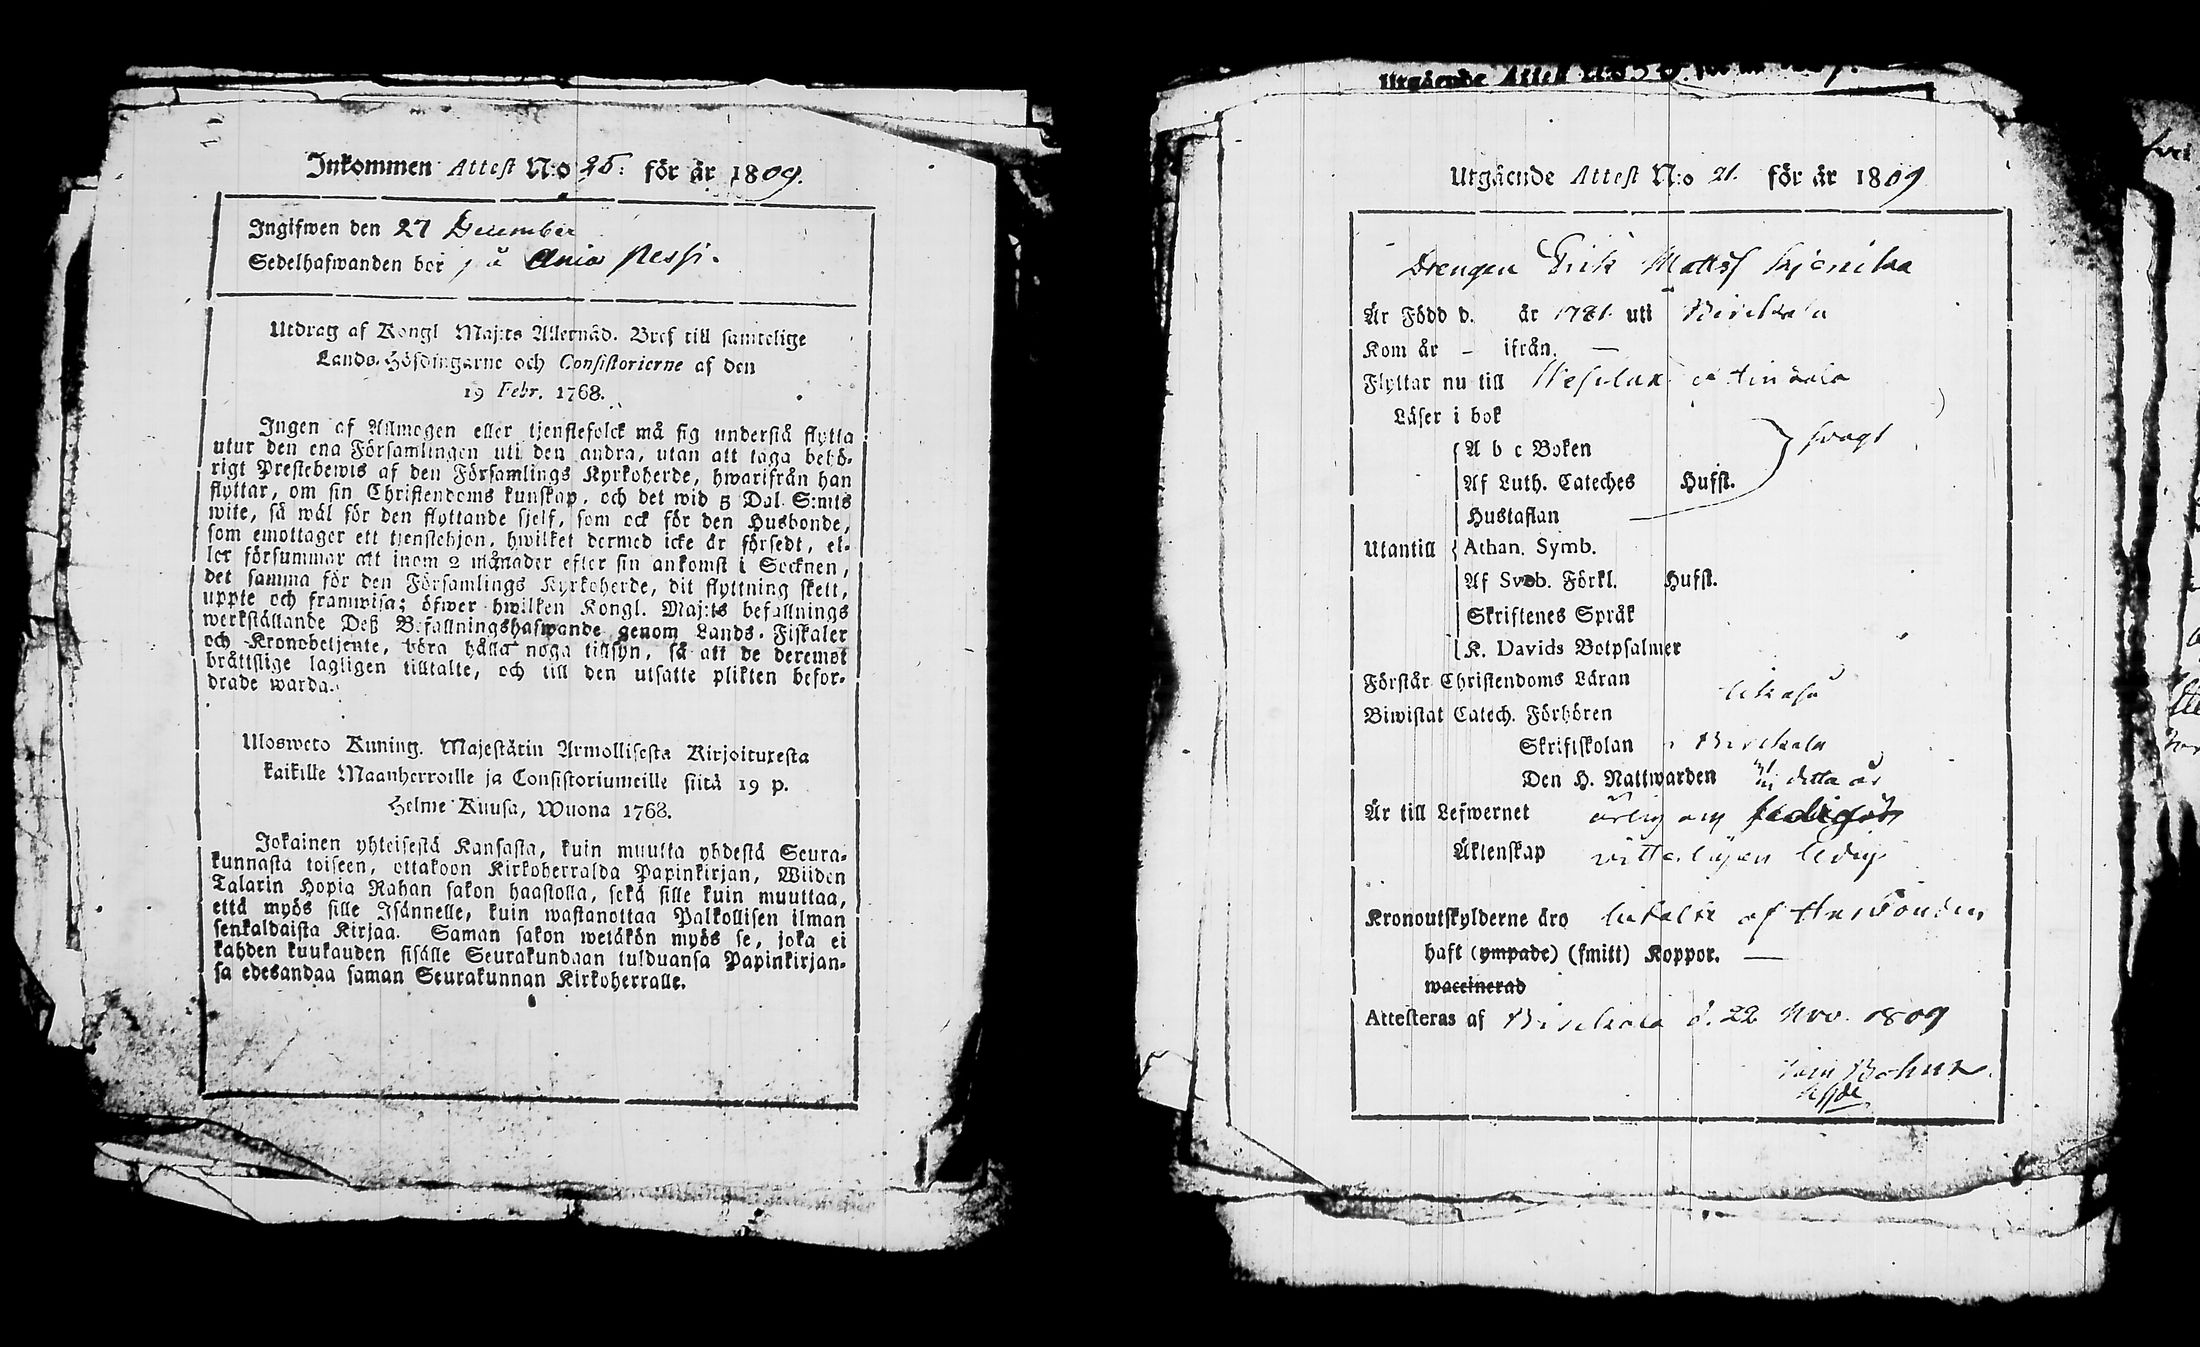 Inkommen Attest N:o 25. för år 1809.
Ingifwen den 27 December
Sedelhafwanden bor på Ania
Utdrag af Kongl Maj:ts Allernåd. Bref till samtelige
Lands-Höfdingarne och Consistorierne af den
19 Febr. 1768.
Ingen af Allmogen eller tjenstefolck må sig understå flytta
utur den ena Församlingen uti den andra, utan att taga behö-
rigt Prestebewis af den Församlings Kyrkoherde, hwarifrån han
flyttar, om sin Christendoms kunskap, och det wid 5 Dal. S:mts
wite, så wäl för den flyttande sjelf, som ock för den Husbonde,
som emottager ett tjenstehjon, hwilket dermed icke är försedt, el-
ler försummar att inom 2 månader efter sin ankomst i Socknen,
det samma för den Församlings Kyrkoherde, dit flyttning skett,
uppte och framwisa; öfwer hwilken Kongl. Maj:ts befallnings
werkställande Deß Befallningshafwande genom Lands-Fiskaler
och Kronobetjente, böra hålla noga tillsyn, så att de deremot
bråttslige lagligen tilltalte, och till den utsatte plikten befor-
drade warda.
Ulosweto Kuning. Majestätin Armollisesta Kirjoituxesta
kaikille Maanherroille ja Consistoriumeille siitä 19 p.
Helme Kuusa, Wuona 1768.
Jokainen yhteisestä Kansasta, kuin muutta yhdestä Seura-
kunnasta toiseen, ottakoon Kirkoherralda Papinkirjan, Wiiden
Talarin Hopia Rahan sakon haastolla, sekä sille kuin muuttaa,
että myös sille Isännelle, kuin wastanottaa Palkollisen ilman
senkaldaista Kirjaa. Saman sakon wetäkön myös se, joka ei
kahden kuukauden sisälle Seurakundaan tulduansa Papinkirjan-
sa edesandaa saman Seurakunnan Kirkoherralle.
Utgående Attest N:o
Utgående Attest N:o 21. för år 1809
Drengen Erik Matts
Är Född d. år 1781 uti Birckala
Kom år – ifrån. —
Flyttar nu till Wesilax
Läser i bok
A b c Boken svagt
Af Luth. Cateches Hufst.
Hustaflan
Utantill Athan. Symb.
Af Sveb. Förkl. Hufst.
Skriftenes Språk
K. Davids Botpsalmer
Förstår Christendoms Läran
Biwistat Catech. Förhören likaså
Skriftskolan i Birckala
Den H. Nattwarden detta år
Är till Lefwernet ärlig och
Äktenskap witterligen ledig
Kronoutskylderne äro betalte af Husbonden
haft (ympade) (smitt) Koppor. —
waccinerad
Attesteras af Birckala d. 22 Nov. 1809